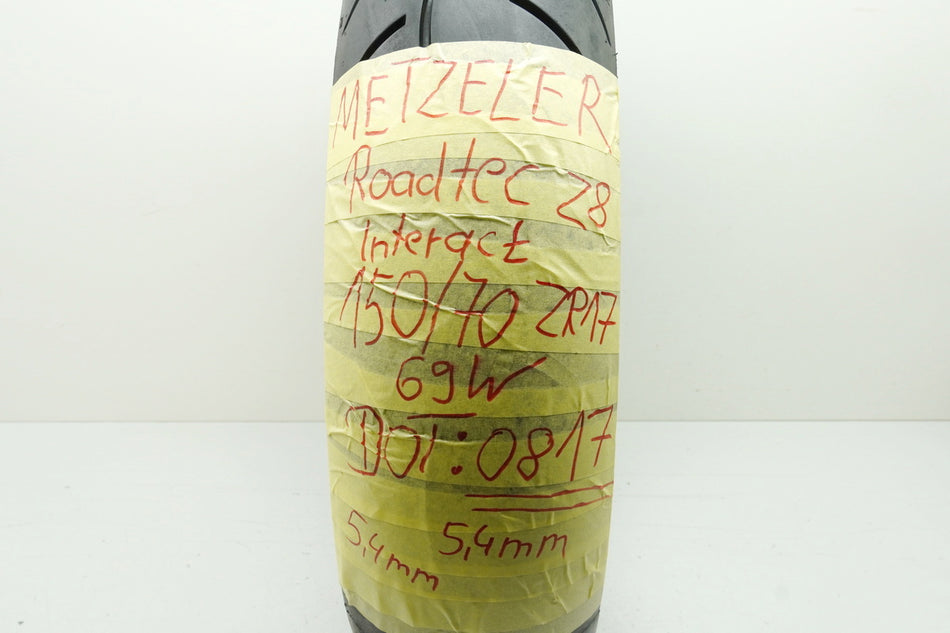 METZELER
Roadtec Z8
Interact
150/70 ZR17
69W
DOT: 0817
5,4mm 5,4mm